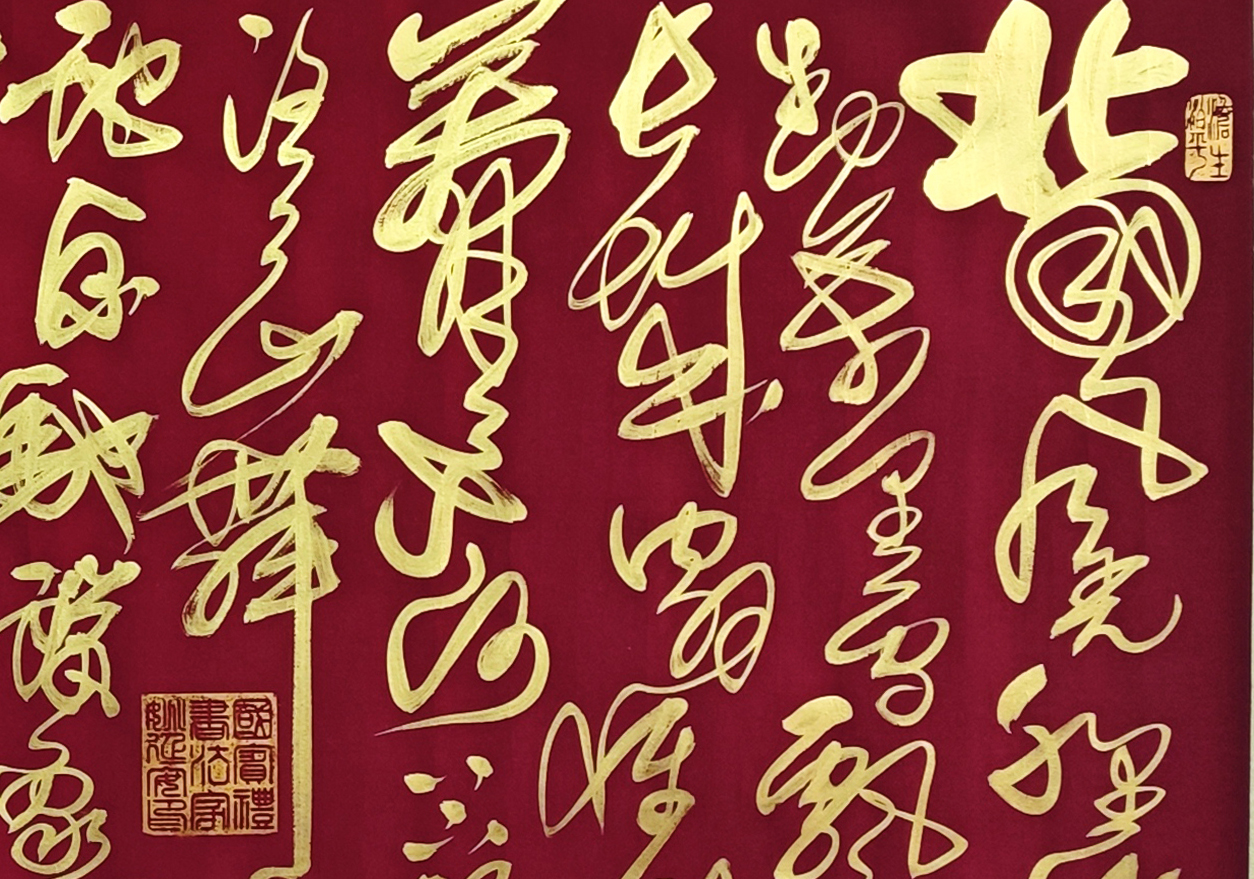 北國風光千里
封萬里雪飄
長城內外惟
莽々大河上下
滔々山舞
蛇原馳蠟象
國賓禮
書法家